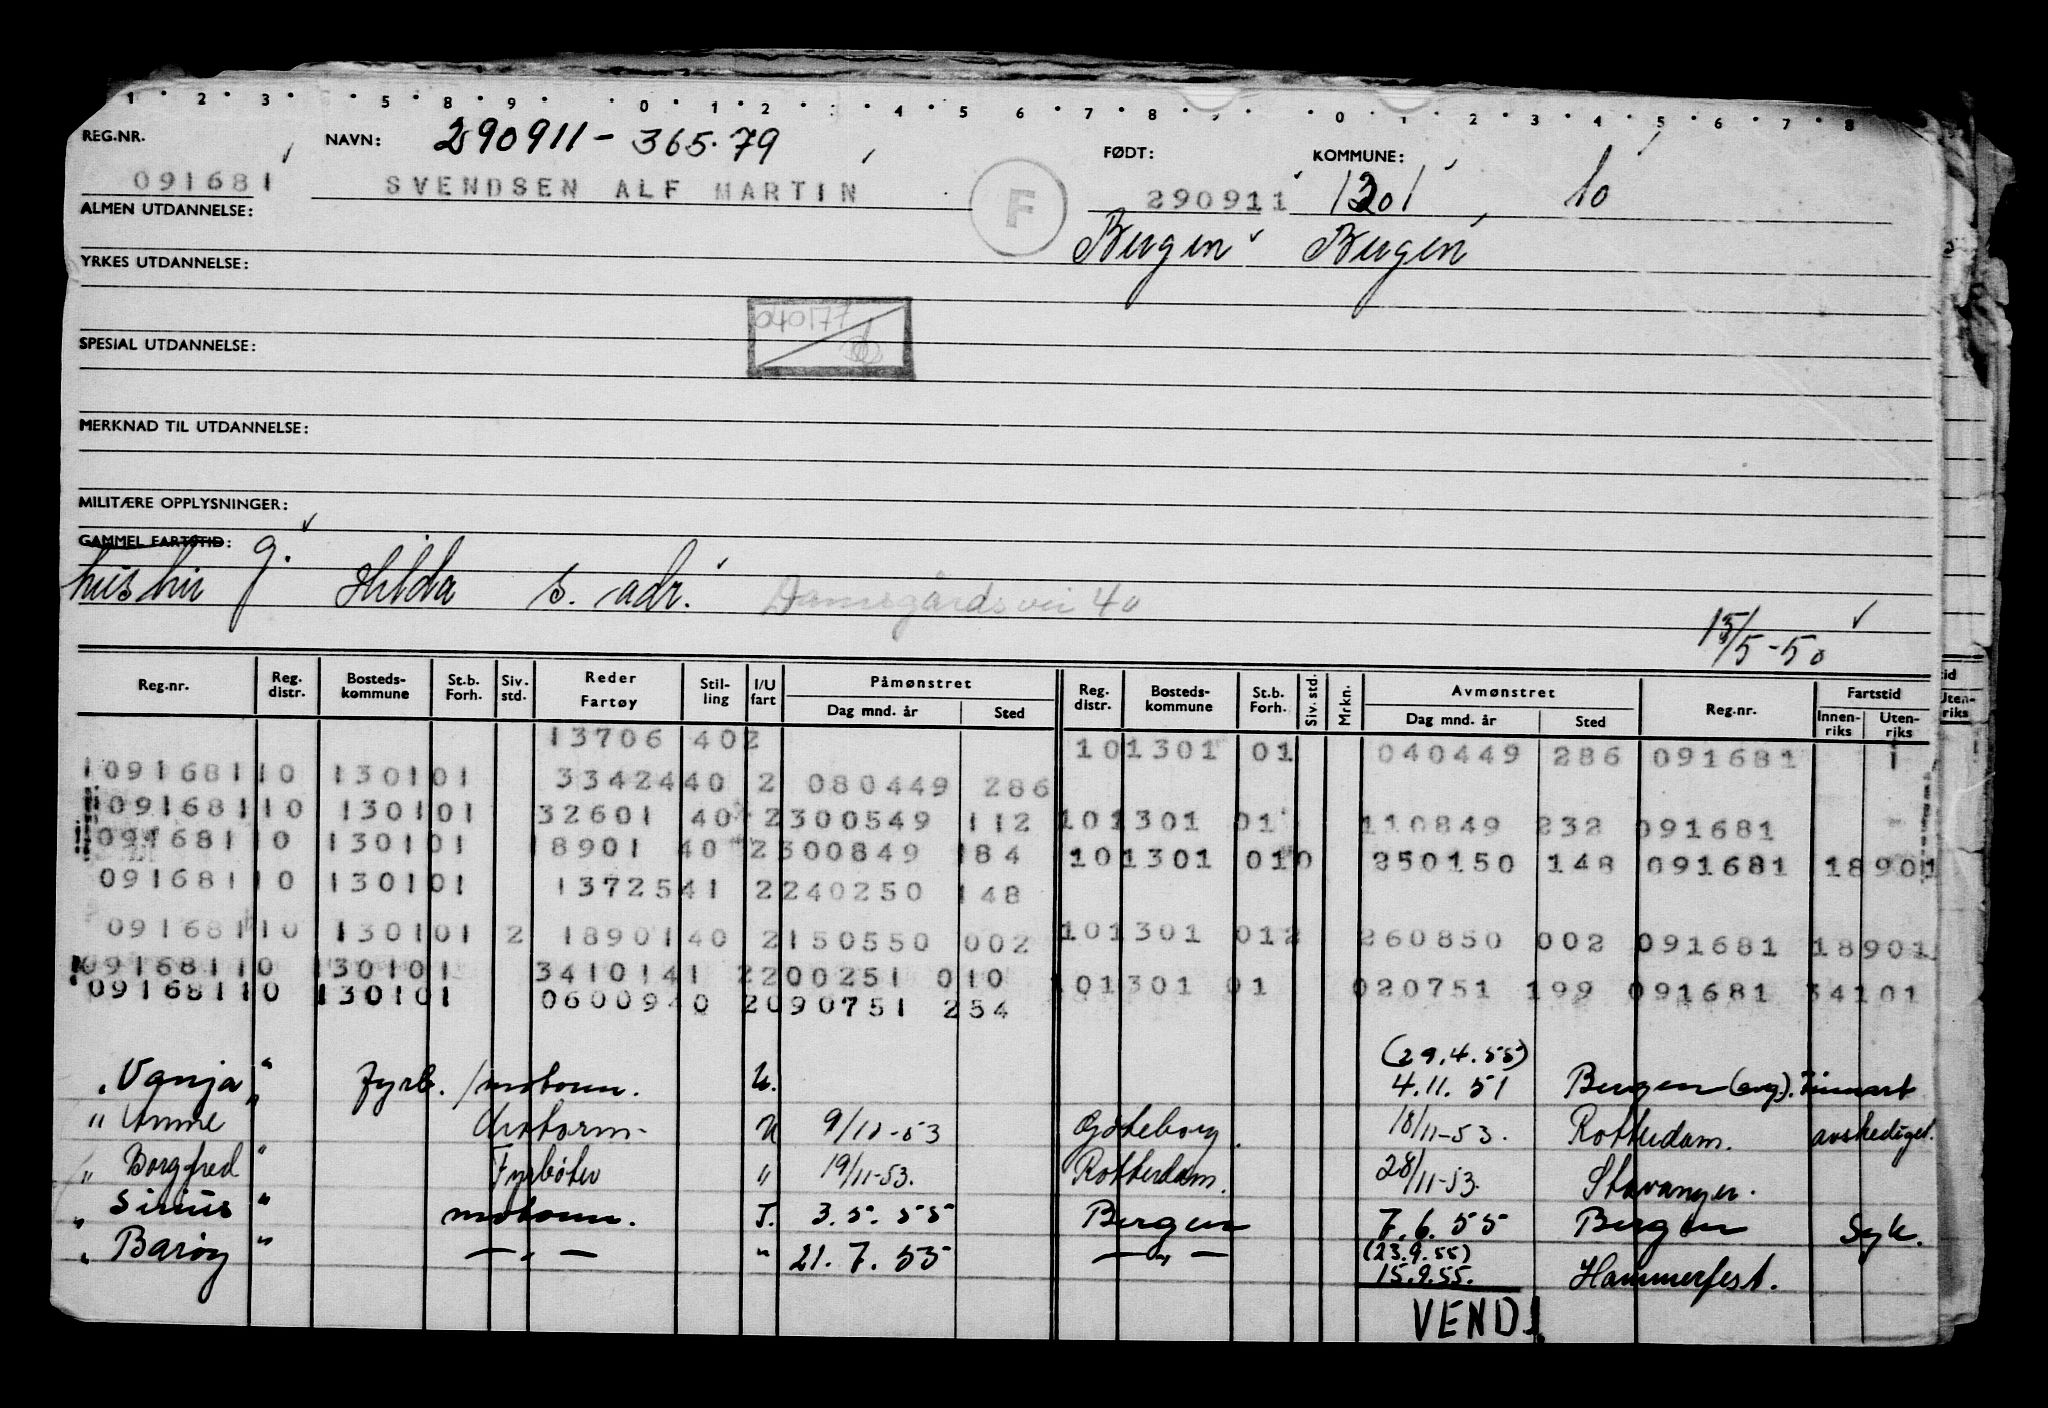 1 2 3 5 8 9 0 1 2 4 5 6 7 8 0 1 2 3 4 5 6 7 8
REG.NR. NAVN: 290911-365.79 FØDT: KOMMUNE:
091681 SVENDSEN ALF MARTIN F 290911 1301 10
ALMEN UTDANNELSE: Bergen Bergen
YRKES UTDANNELSE:
040177
SPESIAL UTDANNELSE:
MERKNAD TIL UTDANNELSE:
MILITÆRE OPPLYSNINGER:
GAMMEL FARTSTID: g.
hustru Hilda s. adr. Damsgårdsvei 40
15/5-50
Reg.nr. Reg. distr. Bosteds-kommune St.b. Forh. Siv. std. Reder Fartøy Stil-ling I/U fart Påmønstret Dag mnd. år Sted Reg. distr. Bosteds-kommune St.b. Forh. Siv. std. Mrkn. Avmønstret Dag mnd. år Sted Reg.nr. Fartstid Innen-riks Uten-riks
13706 402 101301 01 040449 286 091681 1
109168110 130101 3342440 2 080449 286
09168110 130101 32601 40 2300549 112 101301 01 110849 232 091681
09168110 130101 18901 40 2300849 184 101301 010 250150 148 091681 18901
09168110 130101 1372541 2240250 148
09168110 130101 2 1890140 2150550 002 101301 012 260850 002 091681 18901
09168110 130101 3410141 2200251 010 101301 01 020751 199 091681 34101
09168110 130101 0600940 2090751 254
(29.4.55)
" Vanja " Fyrb. / motorm. U. 4.11.51 Bergen (avg).
" Anne " Motorm. U 9/11-53 Göteborg. 18/11-53. Rotterdam. avskediget.
" Borgfred " Fyrbøter " 19/11-53. Rotterdam. 28/11-53. Stavanger.
" Sirius " motorm. I. 3.5.55 Bergen 7.6.55 Bergen Syk.
" Barøy " — " — " 21.7.55 — " — (23.9.55)
15.9.55. Hammerfest.
VEND!